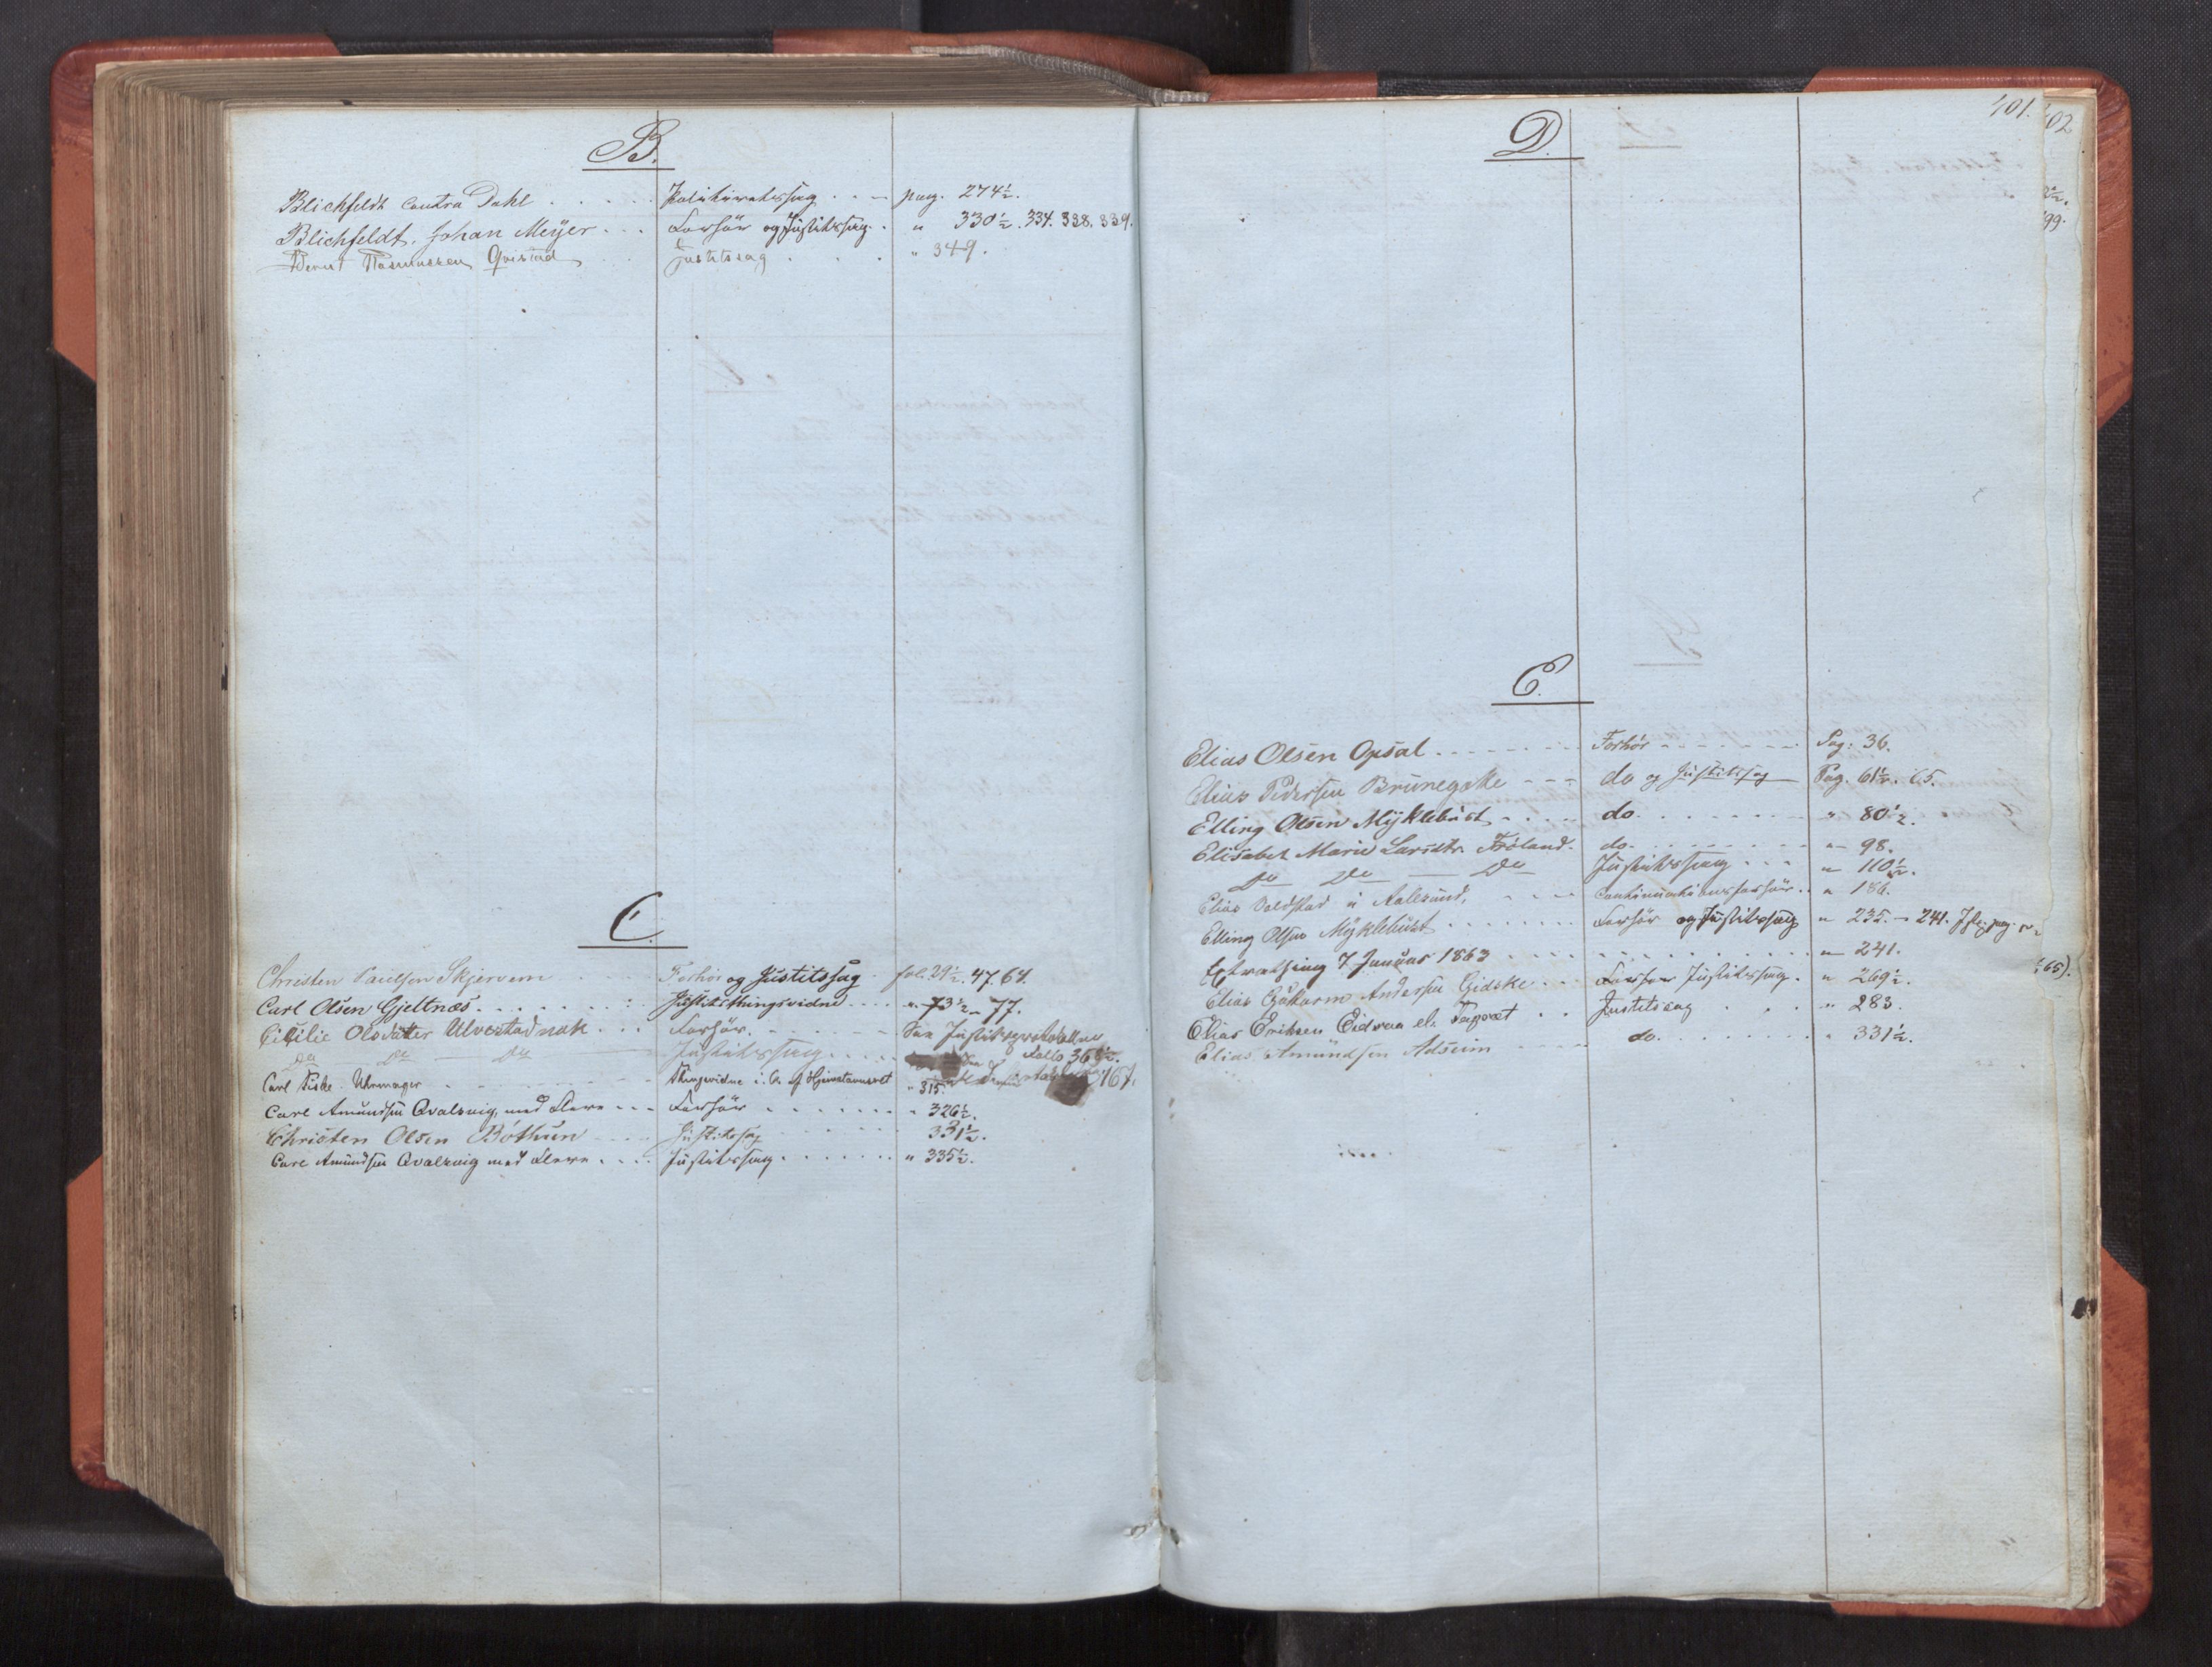 B.
Blichfeldt contra Dahl . . . . . Politiretssag . . — pag. 274½.
Blichfeldt, Johan Meÿer . . . Forhör og Justitssag . . " 330½. 334. 338. 339.
Bernt Rasmussen Qvistad . . Justitssag . . . . " 349.
C.
Christen Paulsen Skjervem Forhör og Justitssag fol. 29½. 47. 64.
Carl Olsen Gjeltnæs . . . . . . : Justitsthingsvidne . . . " 73½ — 77.
Cicilie Olsdatter Ulvestadnak . . . Forhör. See Justitsprotokollen
Do Do — Do Justitssag . . . . . Follo 368½.
Carl Fiske. Uhrmager Thingsvidne " 315. 167.
Carl Amundsen Qvalsvig, med Flere . . . Forhör . . . . . . . " 326½.
Christen Olsen Böthun Justitssag 331½.
Carl Amundsen Qvalsvig med Flere . . . . Justitssag . . . . . . " 335½.
401. 402
D.
99.
E.
Elias Olsen Opsal . . . . . . . . Forhör . . . . . . . Pag: 36.
Elias Pedersen Brunegote - - - do og Justitssag Pag. 61½. 65.
Elling Olsen Mÿklebust . . . . do. . . . . . . . " 80½.
Elisabet Marie Larsdtr. Fröland. do. . . . . . . . " 98.
Do Do — Do Justitssag . . . " 110½.
Elias Soldstad i Aalesund, - - - Continuationsforhör . . " 186.
Elling Olsen Mÿklebust . . . . . . . . Forhör og Justitssag " 235. — 241.
Extrathing 7 Januar 1863 . . . . . . . . . . . " 241.
65).
Elias Andersen Gidske . . . Forhör Justitssag . " 269½.
Elias Eriksen Eidsvaa el. . . Justitssag . . . " 283.
Elias Amundsen Adseim do. . . . . . . . " 331½.